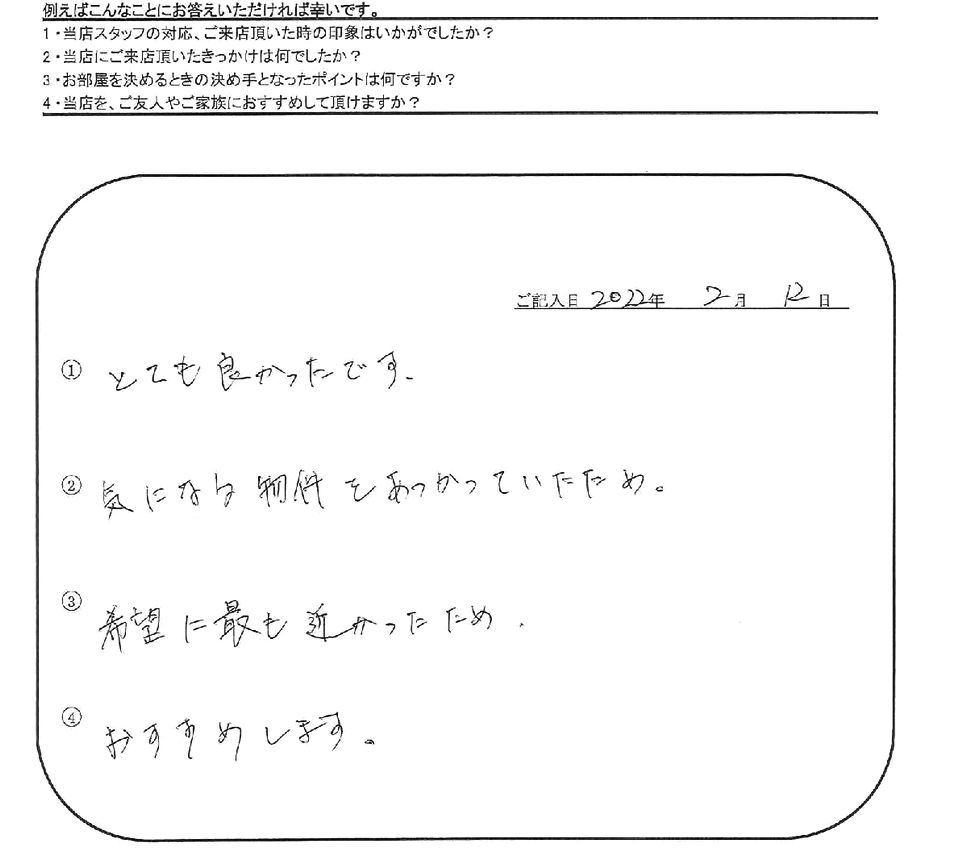 例えばこんなことにお答えいただければ幸いです。
1・当店スタッフの対応、ご来店頂いた時の印象はいかがでしたか？
2・当店にご来店頂いたきっかけは何でしたか？
3・お部屋を決めるときの決め手となったポイントは何ですか？
4・当店を、ご友人やご家族におすすめして頂けますか？
ご記入日 2022年 2月 12日
① とても良かったです.
② 気になる物件をあつかっていたため。
③ 希望に最も近かったため.
④ おすすめします。